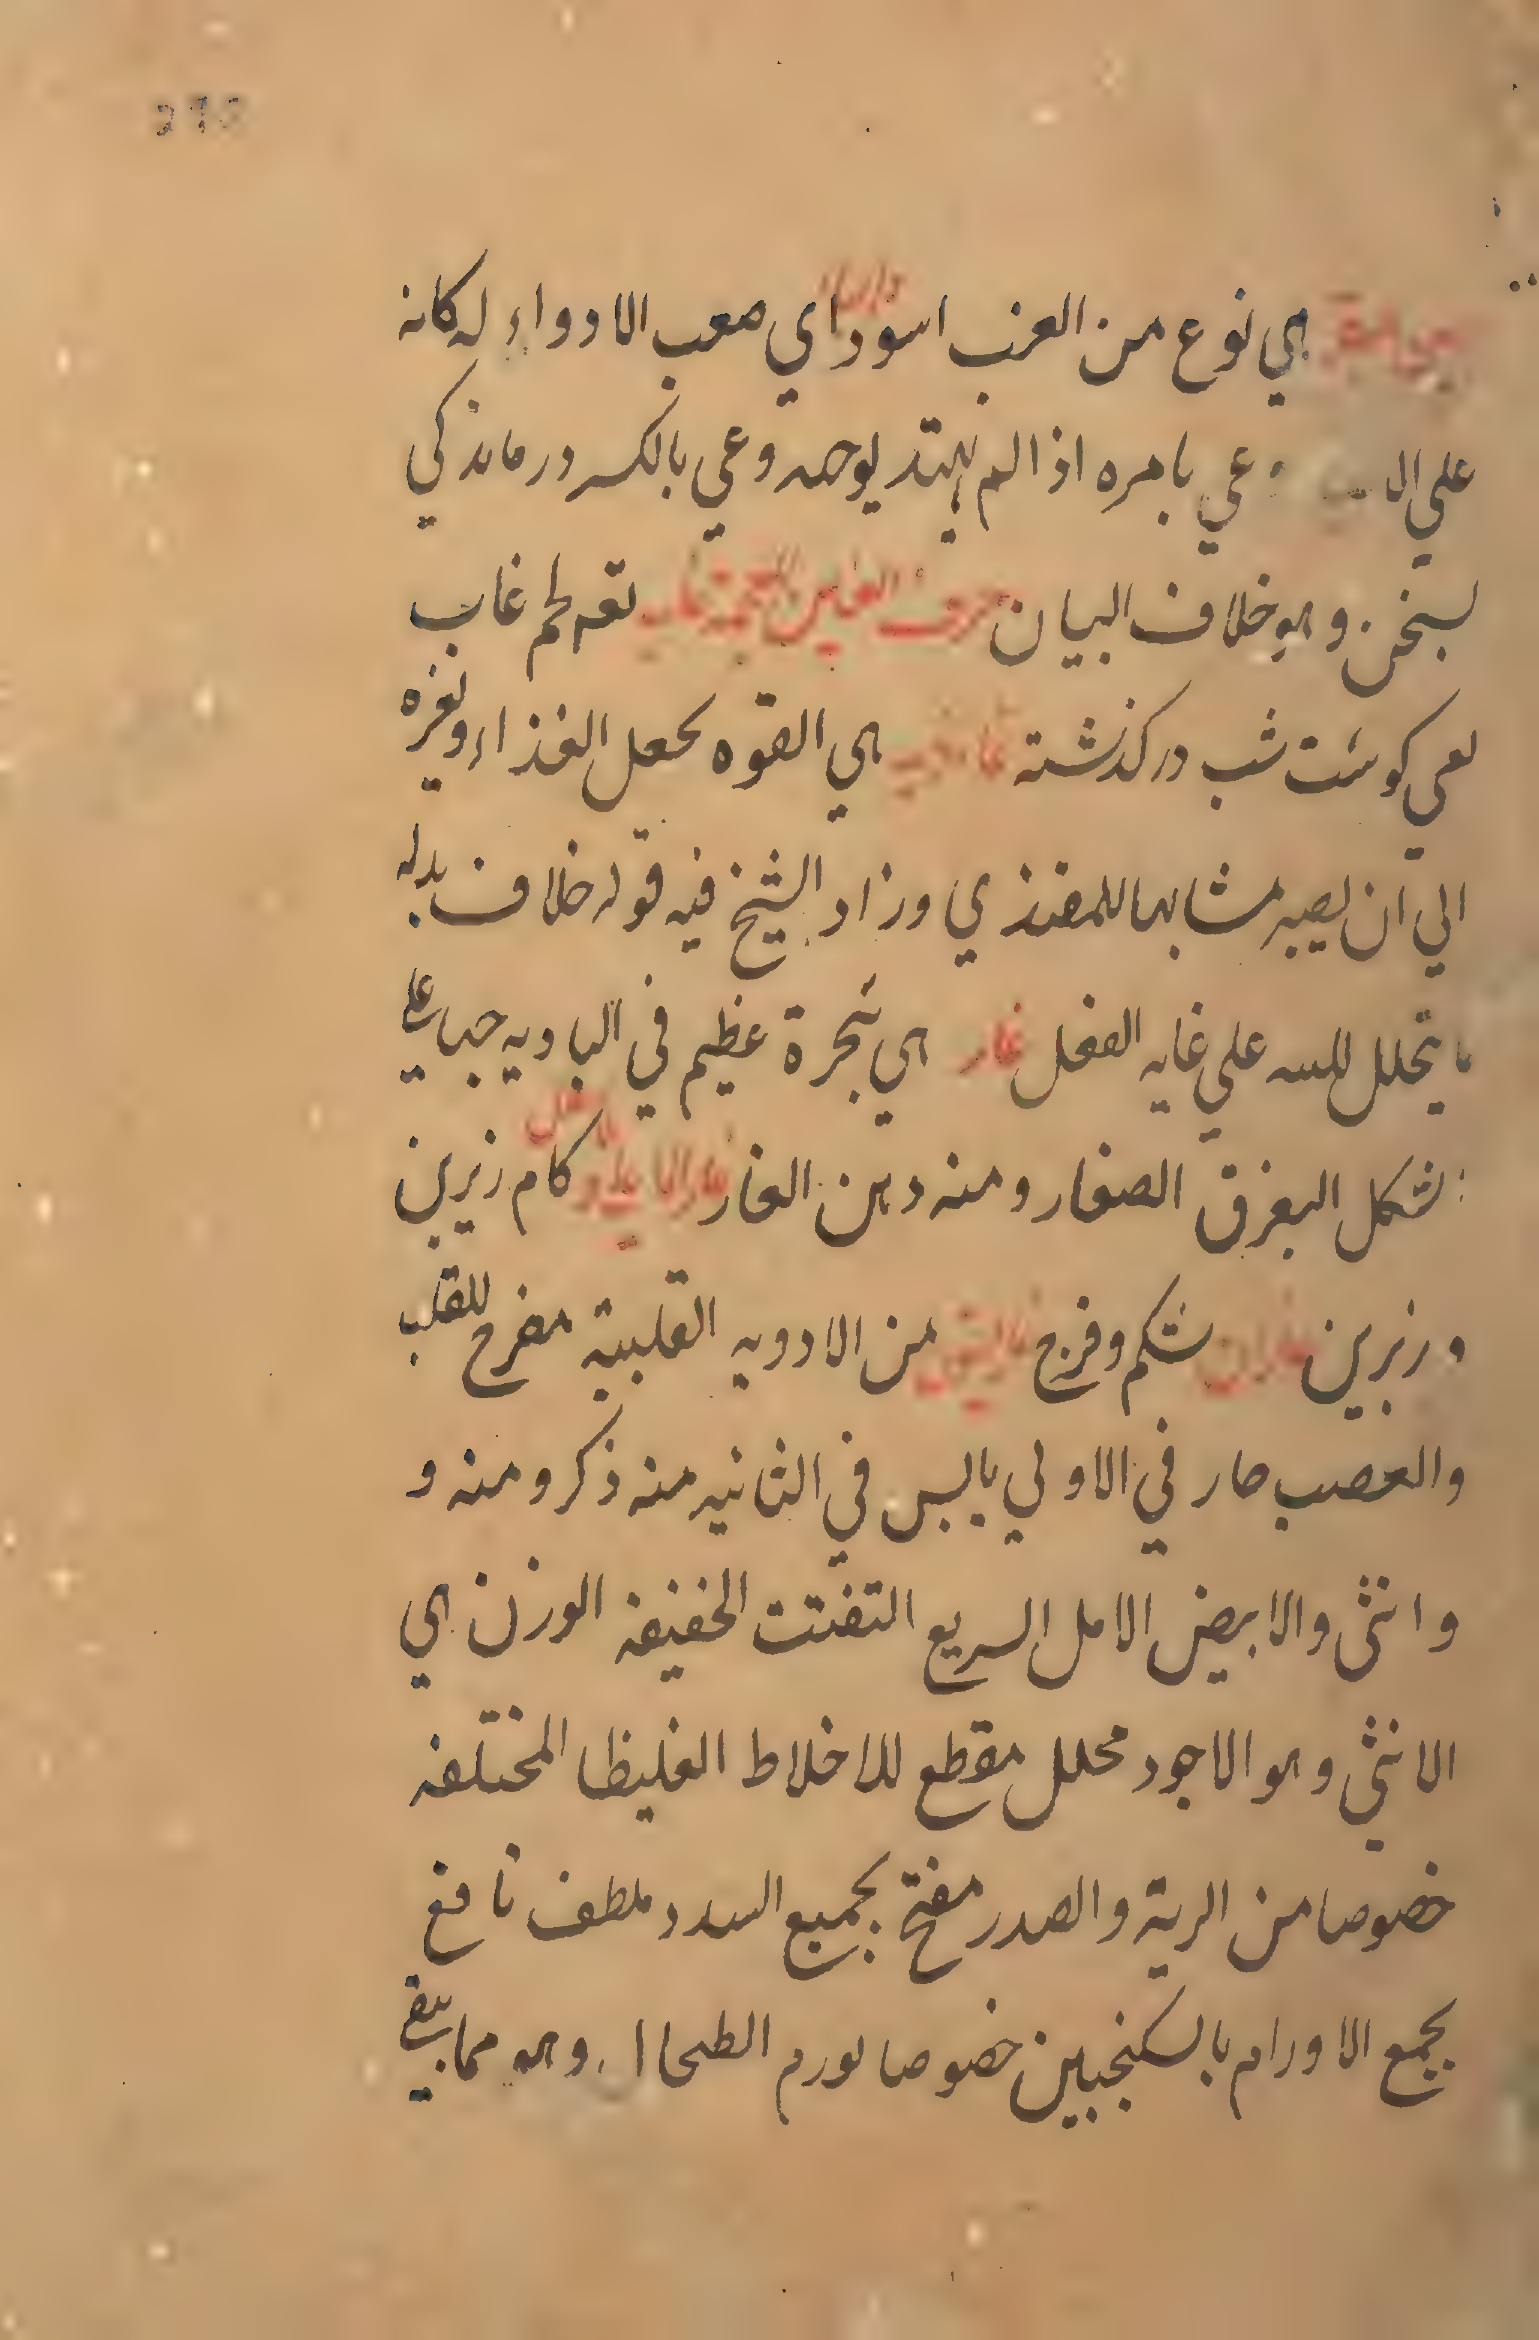 هي نوع من العنب اسود اي صعب الا دواء له كانه
علي عي بامره اذا لم يهتد لوجهه وعي بالكسر درماندكي
بسخن وهو خلاف البيان حرف الغين المعجمة لحم غاب
يعني كوشت شب دركذشته غاذيه هي القوه يحعل الغذاء وتغيره
الي ان يصير مشابها للمغتذي وزاد الشيخ فيه قوله خلاف بدله
ما يتحلل علي غايه الفعل غار هي شجرة عظيم في الباديه حب علي
شكل البندق الصغار ومنه دهن الغار كام زيرين
وزبرين غاران شكم وفرج غاريقون من الادويه القلبية مفرح للقلب
والعصب حار في الاولي يابس في الثانيه منه ذكر ومنه و
وانثى والابيض الاملس السريع التفتت الخفيفة الوزن هي
الانثي وهو الاجود محلل مقطع للاخلاط الغليظا المختلفه
خصوصا من الرية والصدر مفتح بجميع السدد ملطف نافع
بجميع الاورام بالسكنجبين خصوصا لورم الطحال وهو مما ينقي